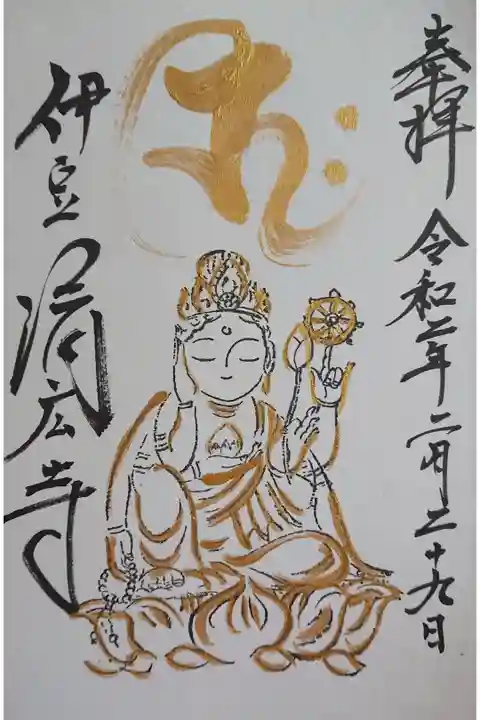 奉拝 令和二年二月二十九日
伊豆 清広寺